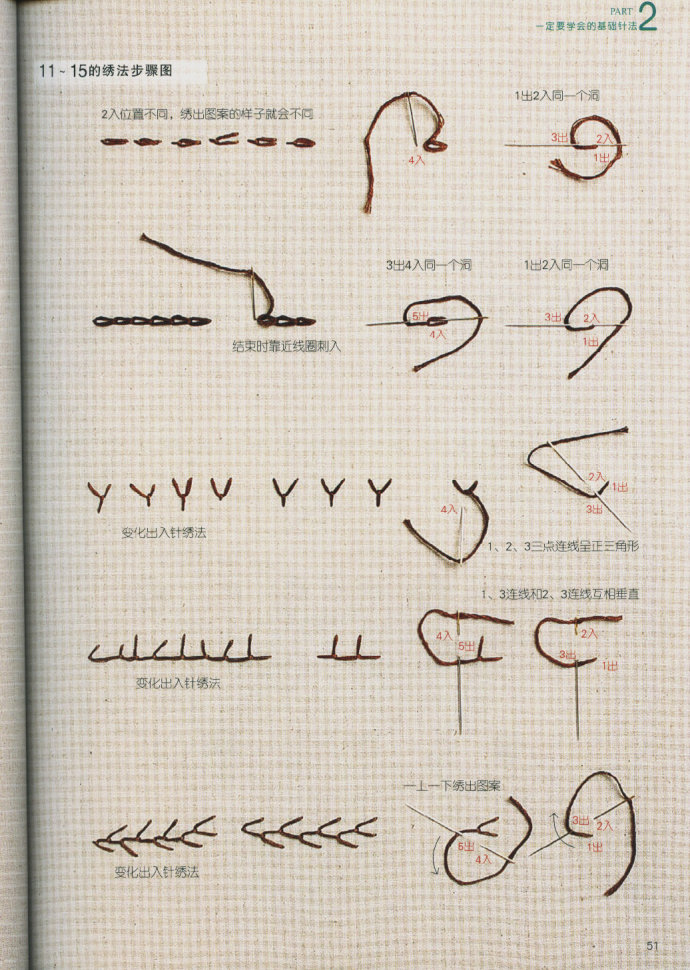 PART 2
一定要学会的基础针法
11~15的绣法步骤图
2入位置不同，绣出图案的样子就会不同
4入
1出2入同一个洞
3出
2入
1出
结束时靠近线圈刺入
3出4入同一个洞
5出
4入
1出2入同一个洞
3出
2入
1出
变化出入针绣法
4入
2入
1出
3出
1、2、3三点连线呈正三角形
变化出入针绣法
4入
5出
1、3连线和2、3连线互相垂直
2入
3出
1出
变化出入针绣法
一上一下绣出图案
5出
4入
3出
2入
1出
51